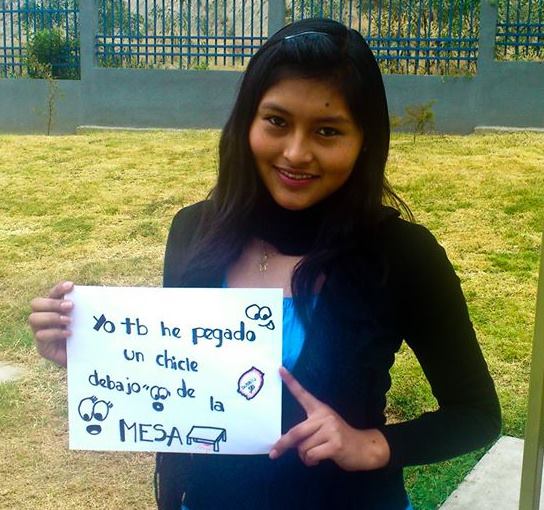 Yo tb he pegado
un chicle
debajo de
la
MESA